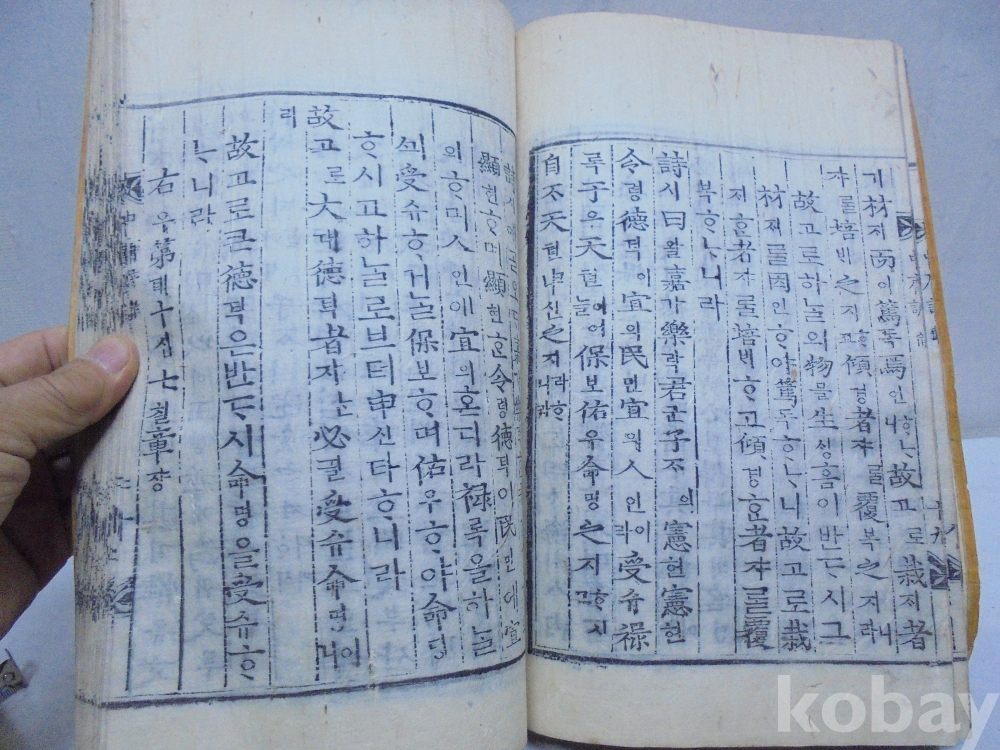 기材ᄌᆡ而이篤독焉언ᄒᆞᄂᆞ니故고로栽ᄌᆡ者
쟈ᄅᆞᆯ培ᄇᆡ之지고傾경者쟈ᄅᆞᆯ覆복之지니라
故고로하ᄂᆞᆯ의物믈生ᄉᆡᆼ홈이반ᄃᆞ시그
材ᄌᆡᄅᆞᆯ因인ᄒᆞ야篤독ᄒᆞᄂᆞ니故고로栽
ᄌᆡᄒᆞᆫ者쟈ᄅᆞᆯ培ᄇᆡᄒᆞ고傾경ᄒᆞᆫ者쟈ᄅᆞᆯ覆
복ᄒᆞᄂᆞ니라
詩시曰왈嘉가樂락君군子ᄌᆞ의憲헌憲헌
令령德덕이宜의民민宜의人인이라受슈祿
록于우天텬이어ᄂᆞᆯ保보佑우命명之지ᄒᆞ시고
自ᄌᆞ天텬申신之지라ᄒᆞ니라
顯현ᄒᆞ며顯현ᄒᆞᆫ令령德덕이民민에宜
의ᄒᆞ며人인에宜의혼디라祿록을하ᄂᆞᆯ
ᄭᅴ受슈ᄒᆞ거ᄂᆞᆯ保보ᄒᆞ며佑우ᄒᆞ야命명
ᄒᆞ시고하ᄂᆞᆯ로브터申신타ᄒᆞ니라
故고로大대德덕者쟈ᄂᆞᆫ必필受슈命명이니
라
故고로큰德덕은반ᄃᆞ시命명을受슈ᄒᆞ
ᄂᆞ니라
右우第뎨十십七칠章장
kobay